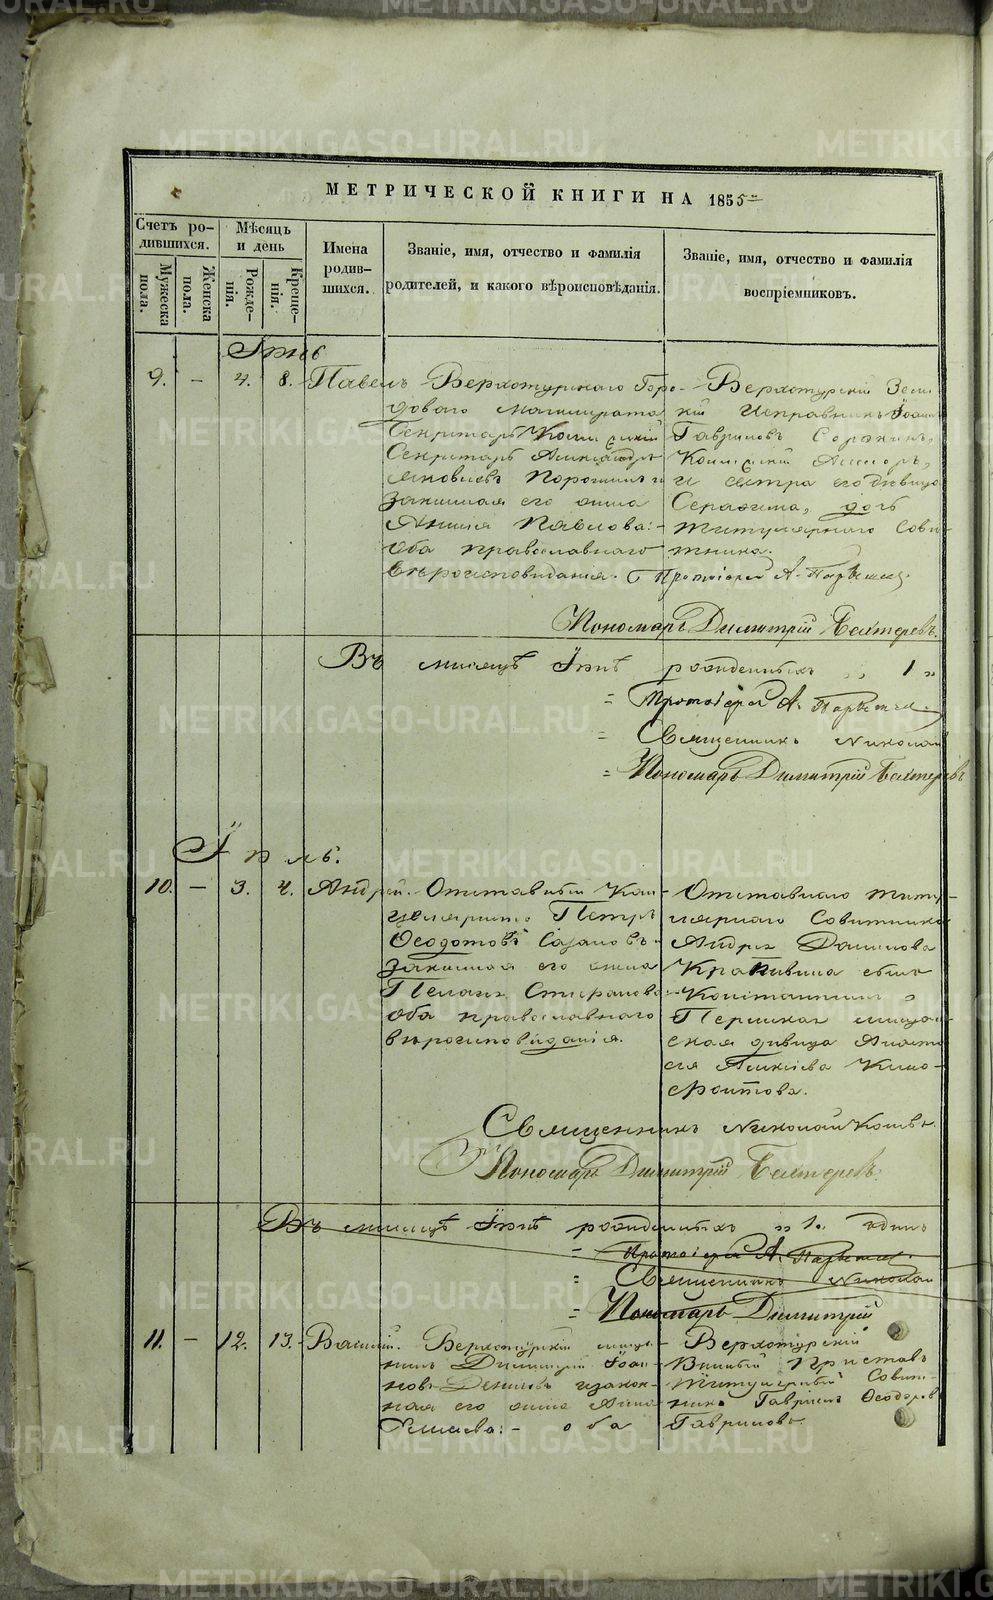 МЕТРИЧЕСКОЙ КНИГИ НА 1855
Счетъ ро-
дившихся.
Мужеска
пола.
Женска
пола.
Мѣсяцъ
и день
Рожде-
нія.
Креще-
нія.
Имена
родив-
шихся.
Званіе, имя, отчество и фамилія
родителей, и какого вѣроисповѣданія.
Званіе, имя, отчество и фамилія
воспріемниковъ.
Іюнь
9. - 4. 8. Павелъ
Верхотурскаго Горо-
доваго магистрата
Секретарь
Секретарь Александръ
Яковлевъ
законная его жена
Павлова:-
оба православнаго
вѣроисповѣданія.
Верхотурскій Зем-
скій Исправникъ Іоаннъ
Гавриловъ Сорокинъ,
и сестра его дѣвица
Серафима, дочь
Титулярнаго Совѣ-
тника.
Протоіерей А.
Пономарь Димитрій Бехтеревъ.
Въ мѣсяцѣ Іюнѣ рожденныхъ „ 1 „
= Протоіерей А.
= Священникъ Николай
= Пономарь Димитрій Бехтеревъ
Іюль.
10. - 3. 4. Андрей.
Отставный Кан-
целяристъ Петръ
Ѳеодотовъ
законная его жена
Стефанова
оба православнаго
вѣроисповѣданія.
Отставнаго Титу-
лярнаго Совѣтника
Андрея Данилова
Крапивина сынъ
Константинъ,
Пермская мѣщан-
ская дѣвица
Священникъ Николай
Пономарь Димитрій Бехтеревъ.
Въ мѣсяцѣ Іюнѣ рожденныхъ „ 1. одинъ
= Протоіерей А.
= Священникъ Николай
= Пономарь Димитрій
11. - 12. 13. Василій.
Верхотурскій мѣща-
нинъ Димитрій Іоан-
новъ Денисовъ и закон-
ная его жена Анна
оба
Верхотурскій
Винный Приставъ
Титулярный Совѣт-
никъ Гавріилъ Ѳеодоровъ
Гавриловъ.
METRIKI.GASO-URAL.RU